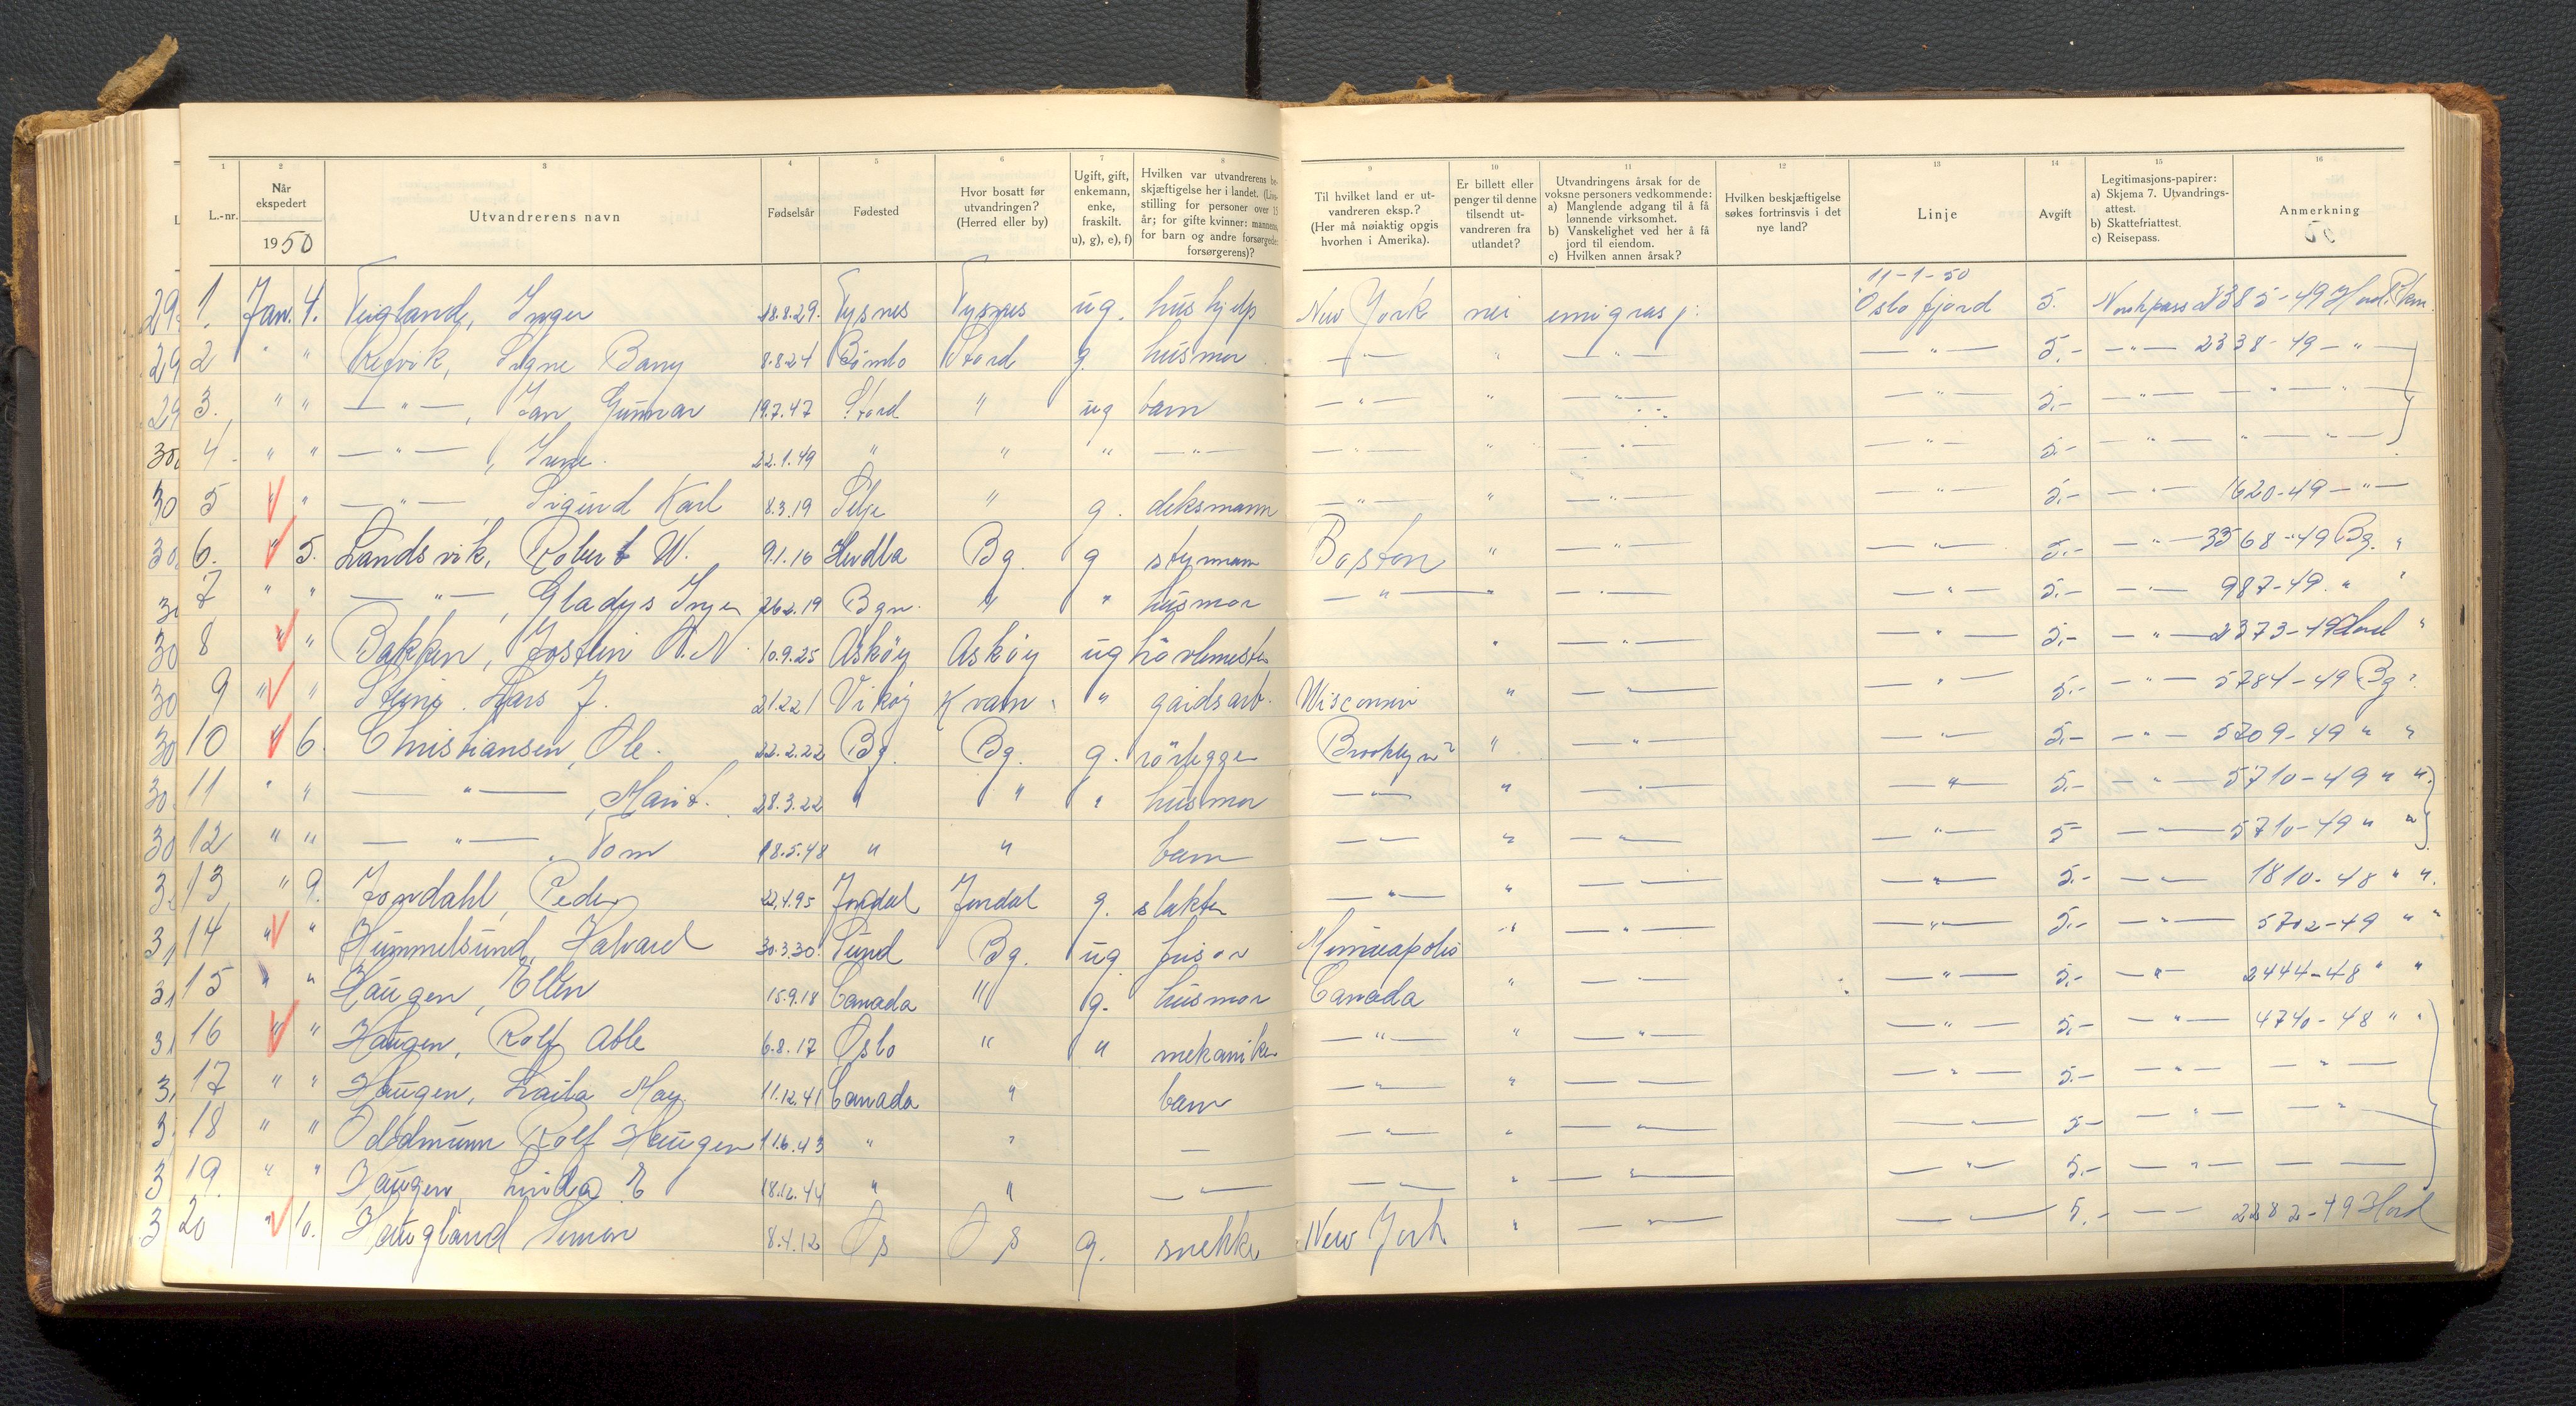 1 2 3 4 5 6 7 8 9 10 11 12 13 14 15 16
L.-nr. Når ekspedert 1950 Utvandrerens navn Fødselsår Fødested Hvor bosatt før utvandringen? (Herred eller by) Ugift, gift, enkemann, enke, fraskilt. u), g), e), f) Hvilken var utvandrerens beskjæftigelse her i landet. (Livsstilling for personer over 15 år; for gifte kvinner: mannens, for barn og andre forsørgede: forsørgerens)? Til hvilket land er utvandreren eksp.? (Her må nøiaktig opgis hvorhen i Amerika). Er billett eller penger til denne tilsendt utvandreren fra utlandet? Utvandringens årsak for de voksne personers vedkommende: a) Manglende adgang til å få lønnende virksomhet. b) Vanskelighet ved her å få jord til eiendom. c) Hvilken annen årsak? Hvilken beskjæftigelse søkes fortrinsvis i det nye land? Linje Avgift Legitimasjons-papirer: a) Skjema 7. Utvandrings-attest. b) Skattefriattest. c) Reisepass. Anmerkning 50
11-1-50
1. Jan. 4. Teigland, Inger 18.8.29. Tysnes Tysnes ug. hushjelp New York nei emigrasj: Oslofjord 5. Norskpass 2385-49 Hord.
2 " " Refvik, Signe Bany 8.8.24 Bömlo Stord g. husmor — " — " — " — — " — 5.- — " — 2338-49 — " —
3. " " — " —, Jan Gunnar 19.7.47 Stord " ug barn — " — " — " — — " — 5.- — " — — " — " —
4. " " — " —, Irene. 22.1.49 " " " — " — — " — " — " — — " — 5.- — " — " — " —
5 " " — " — Sigurd Karl 8.3.19 Selje " g. deksmann — " — " — " — — " — 5.- — " — 1620-49 — " —
6. " 5. Landsvik, Robert W. 9.1.16 Herdla Bg. g styrmann Boston " — " — — " — 5.- — " — 3568-49 Bg. "
7 " " — " —, Gladys Inger 26.2.19 Bgn. " " husmor — " — " — " — — " — 5.- — " — 987-49. " "
8 " " Bakken, Jostein A. N. 10.9.25 Asköy Asköy ug hövlemester " — " — 5.- — " — 2373-49 Hord "
9 " " Steine. Lars J. 21.2.21 Viköy Kvam. " gårdsarb. Wisconsin " — " — — " — 5.- — " — 5784-49 Bg "
10 " 6. Christiansen, Ole. 22.2.22 Bg. Bg. g. rörlegger Brooklyn " — " — — " — 5.- — " — 5709-49 " "
11 " " — " —, Marit. 28.3.22 " " " husmor — " — " — " — — " — 5.- — " — 5710-49 " "
12 " " — " —, Tom 18.5.48 " " barn — " — " — " — — " — 5- — " — 5710-49 " "
13 " 9. Jondahl, Peder 22.4.95 Jondal Jondal g. slakter — " — " — — — " — 5.- — — 1810-48 " "
14 " " Hummelsund, Halvard 30.3.30. Sund Bg. ug frisör Minneapolis " — " — — " — 5.- — " — 5702-49 " "
15 " " Haugen, Ellen 15.9.18 Canada " g. husmor Canada " — " — — " — 5.- — " — 2444-48 " "
16 " " Haugen, Rolf Atle 6.8.17 Oslo " " mekaniker — " — " — " — — " — 5.- — " — 4740-48 " "
17 " " Haugen, Laila May 11.12.41 Canada " barn — " — " — — — " — 5.- — " — — " —
18 " " Oddmunn Rolf Haugen 11.6.43 " " — — " — " — " — — " — 5- — " — — " —
19. " " Haugen, Linda E 18.12.44 " " — " — — " — " — " — — " — 5.- — " — — —
20 " 10. Haugland Simon 8.4.12 Os Os g. snekker New York " — " — — " — 5.- — — 2282-49 Hord